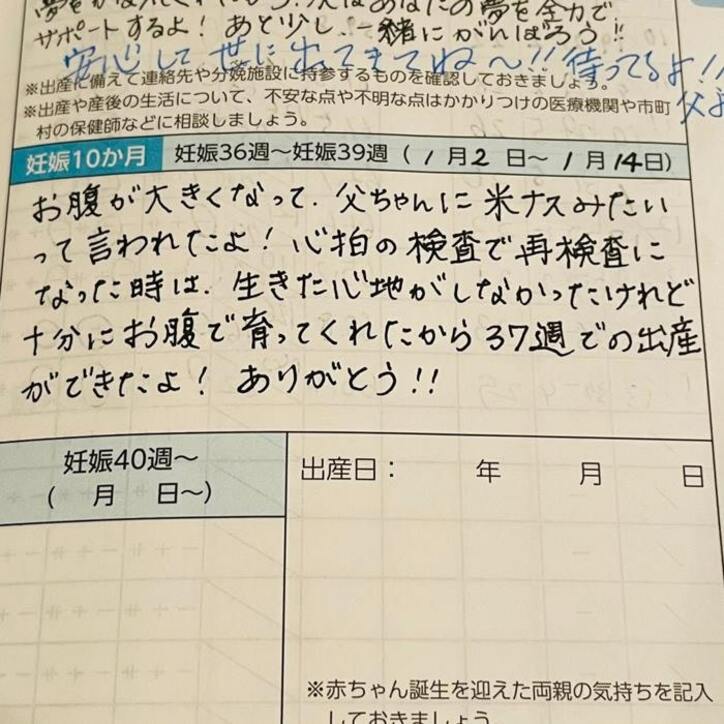 夢をかなえてくれたから、次はあなたの夢を全力で
サポートするよ！あと少し、一緒にがんばろう！！
安心して世に出てきてね〜！！待ってるよ！！
※出産に備えて連絡先や分娩施設に持参するものを確認しておきましょう。
※出産や産後の生活について、不安な点や不明な点はかかりつけの医療機関や市町
父より
村の保健師などに相談しましょう。
妊娠10か月 妊娠36週～妊娠39週（1月2日～1月14日）
お腹が大きくなって、父ちゃんに米ナスみたい
って言われたよ！心拍の検査で再検査に
なった時は、生きた心地がしなかったけれど
十分にお腹で育ってくれたから37週での出産
ができたよ！ありがとう！！
妊娠40週～
（ 月 日～）
出産日： 年 月 日
※赤ちゃん誕生を迎えた両親の気持ちを記入
しておきましょう